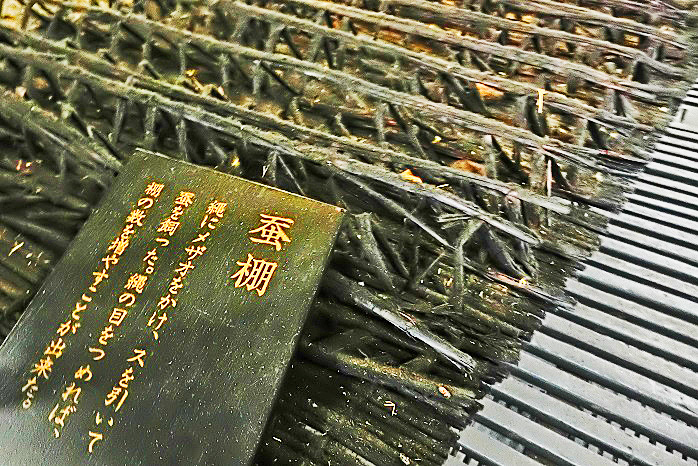 蚕棚
縄にメザオをかけ、スを引いて
蚕を飼った。縄の目をつめれば、
棚の数を増やすことが出来た。